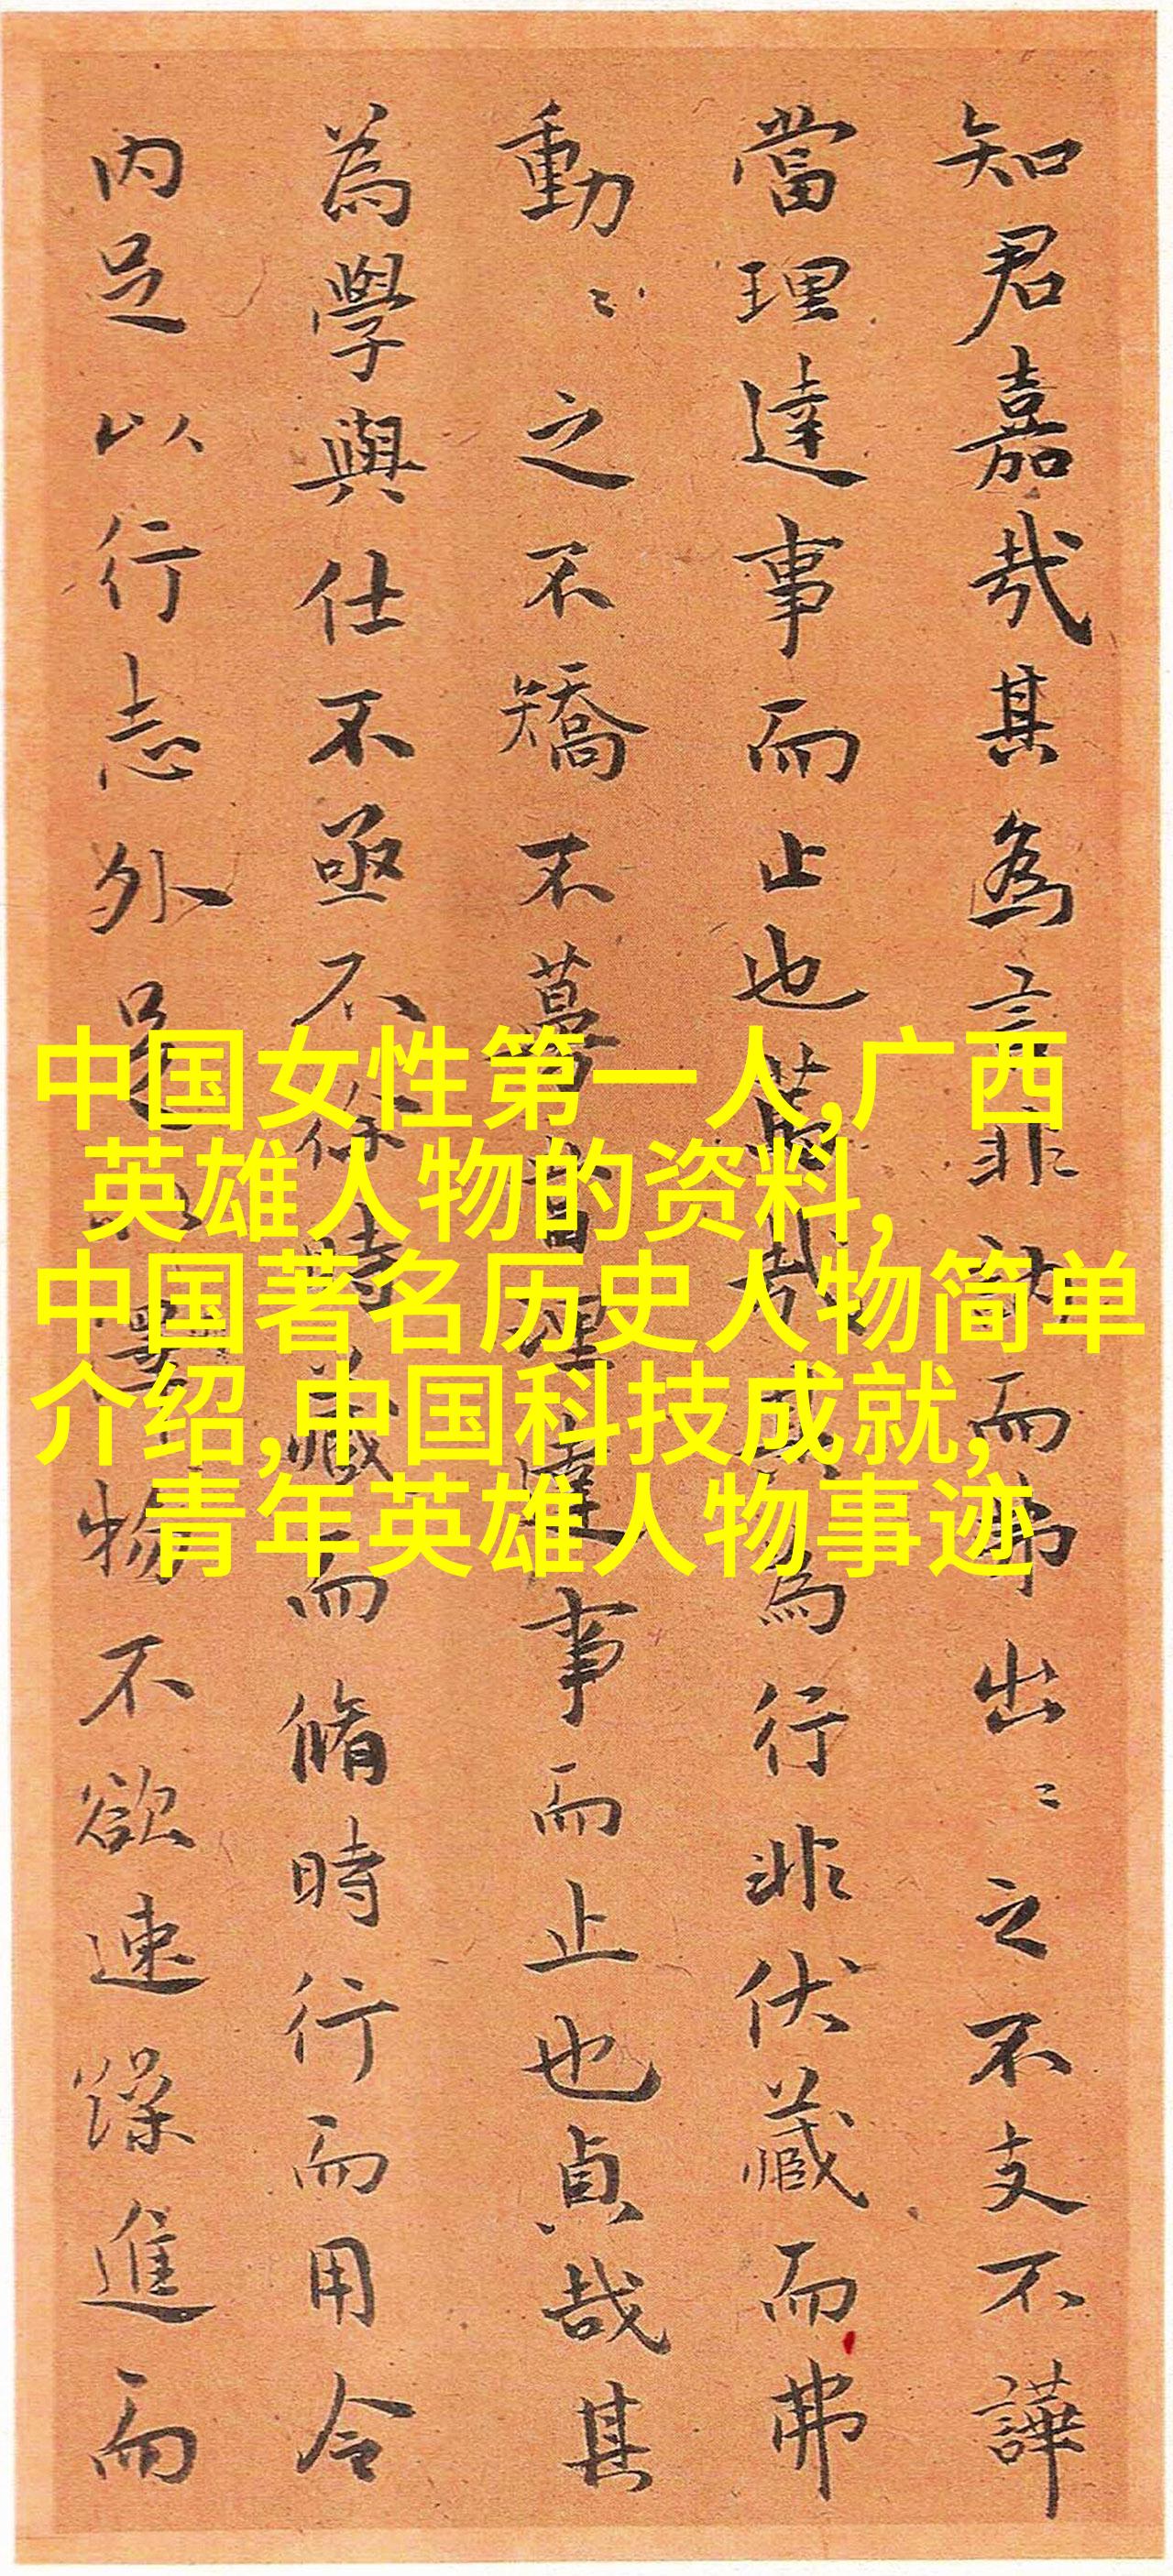 知君嘉哉其為言非訥而弗出〻之不支不譁
當理達事而止也哉其為行非伏藏而弗
動〻之不矯不當理達事而止也貞哉其
為學與仕不亟不徐時藏而脩時行而用令
內足以行志外足以澤物不欲速躁進而
中国女性第一人,广西
英雄人物的资料,
中国著名历史人物简单
介绍,中国科技成就,
青年英雄人物事迹